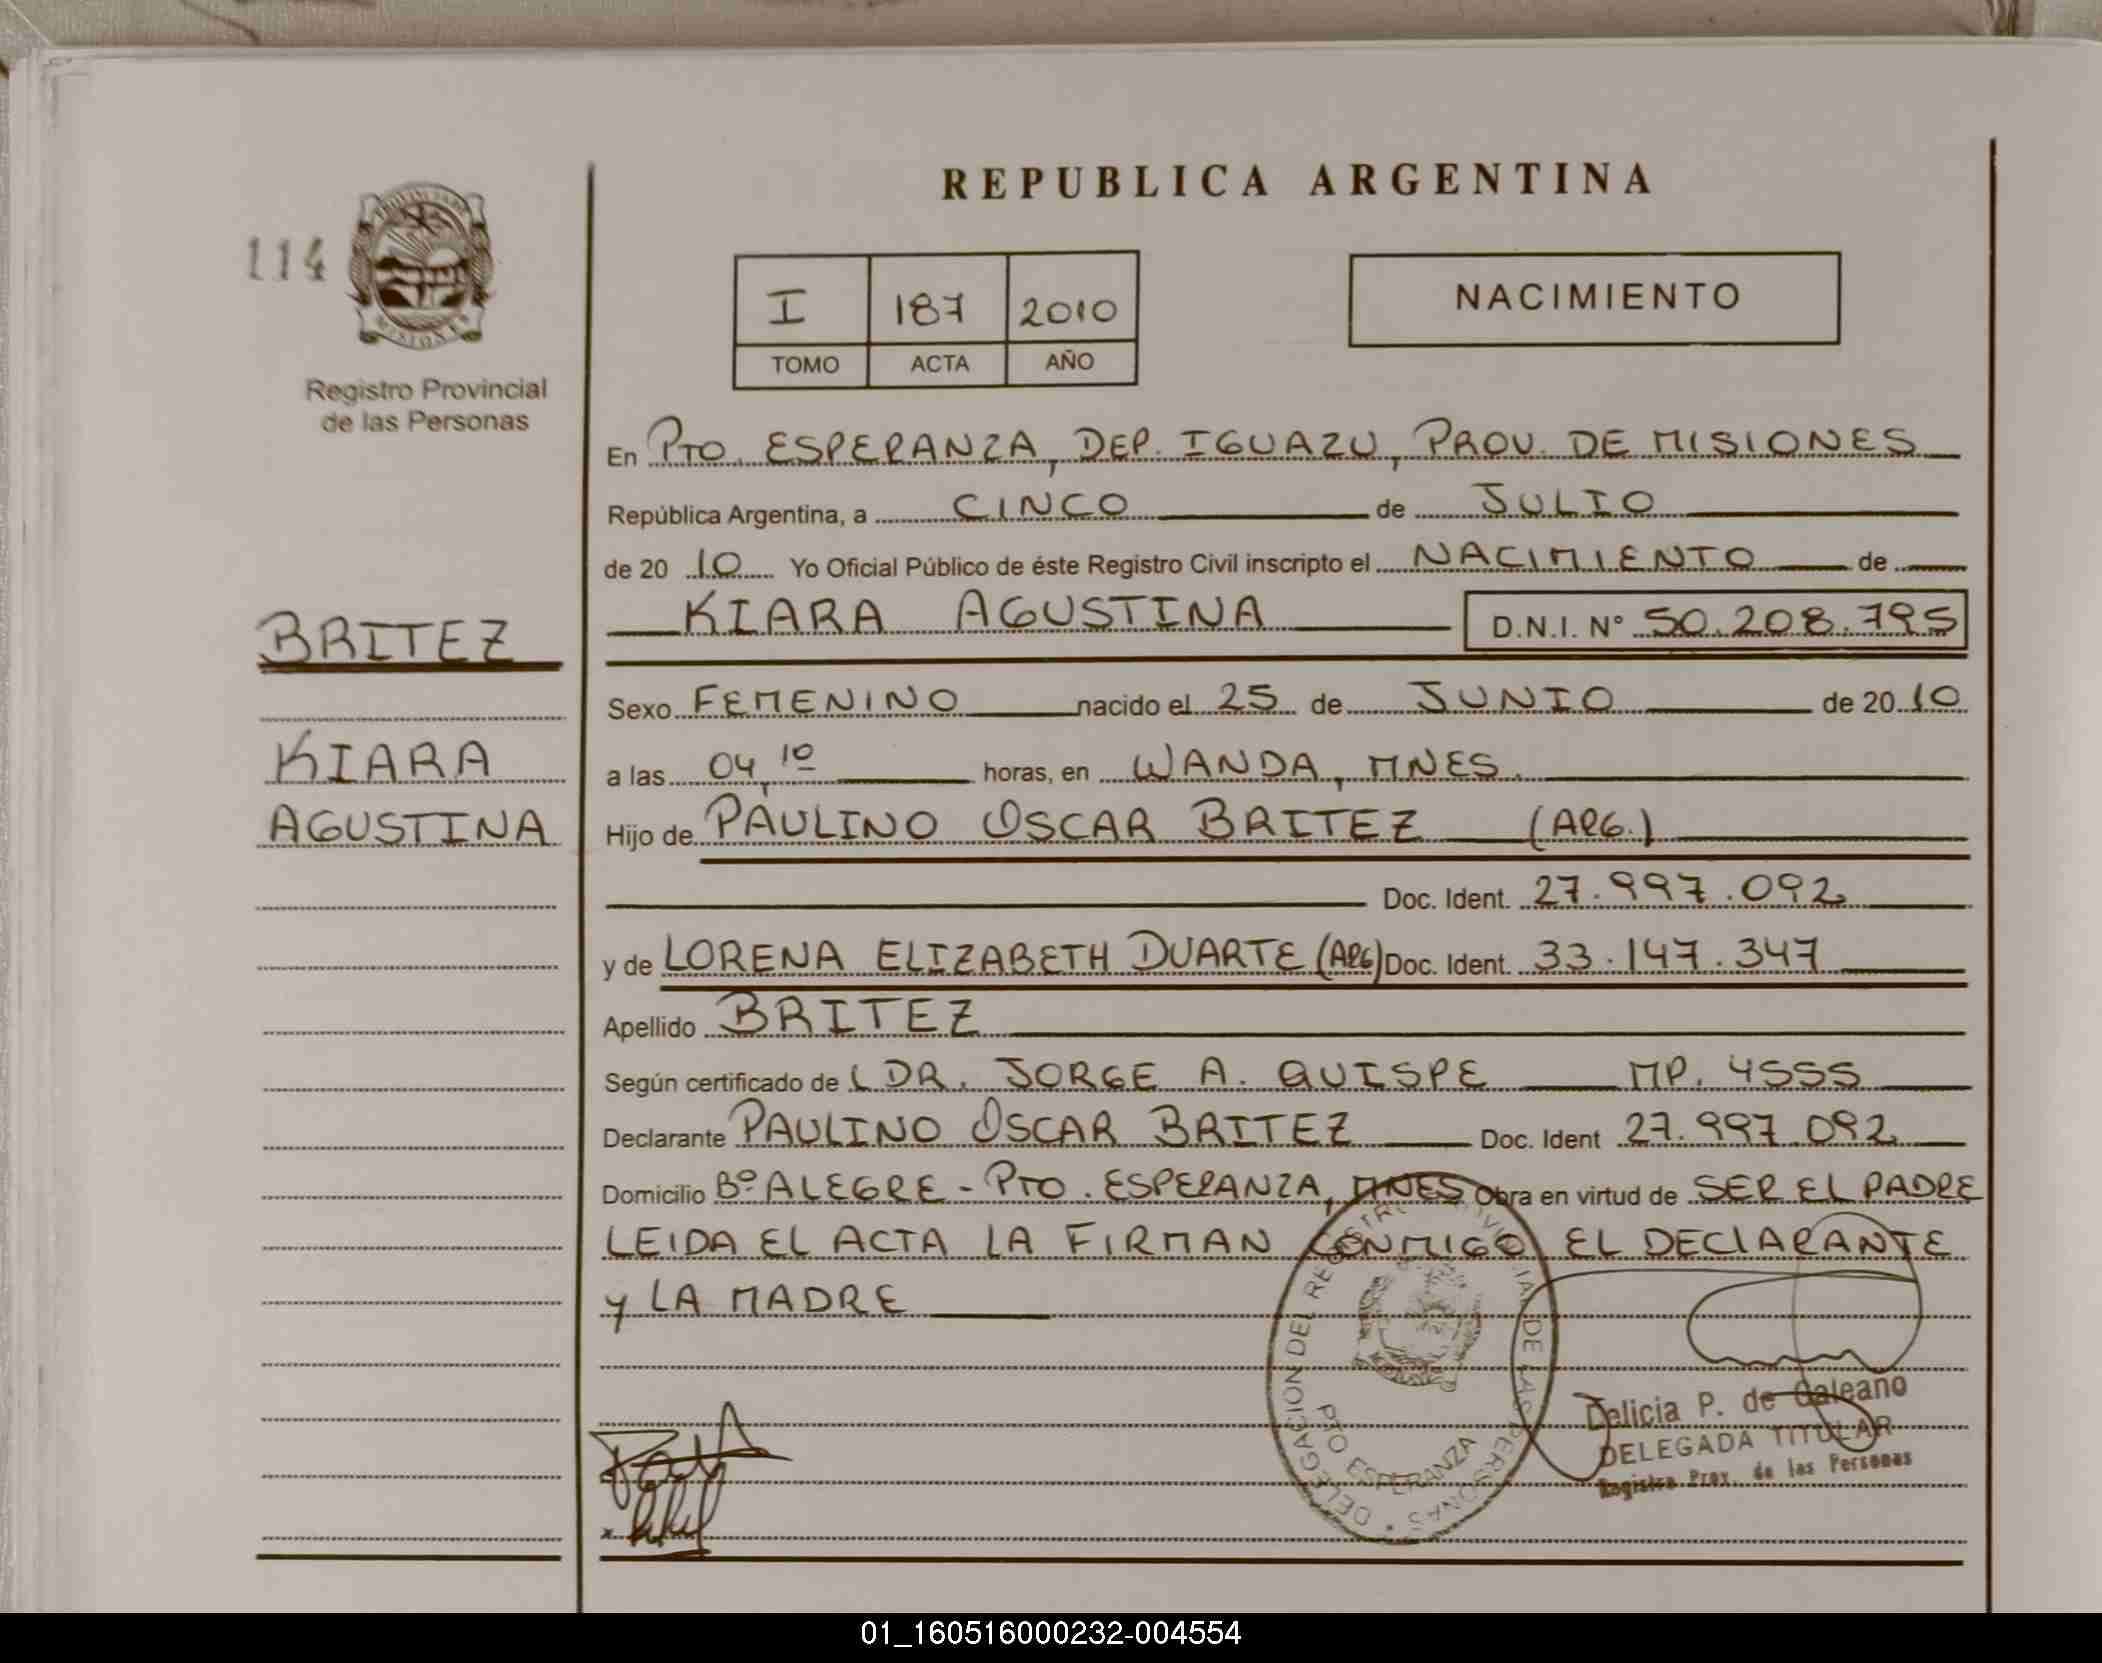 REPUBLICA ARGENTINA
114
PROVINCIA DE
MISIONES
Registro Provincial
de las Personas
I 187 2010
TOMO ACTA AÑO
NACIMIENTO
En PTO. ESPERANZA, DEP. IGUAZU, PROV. DE MISIONES
República Argentina, a CINCO de JULIO
de 20 10 Yo Oficial Público de éste Registro Civil inscripto el NACIMIENTO de
KIARA AGUSTINA D.N.I. N° 50.208.795
BRITEZ
KIARA
AGUSTINA
Sexo FEMENINO nacido el 25 de JUNIO de 20 10
a las 04,10 horas, en WANDA, MNES.
Hijo de PAULINO OSCAR BRITEZ (ARG.)
Doc. Ident. 27.997.092
y de LORENA ELIZABETH DUARTE (ARG) Doc. Ident. 33.147.347
Apellido BRITEZ
Según certificado de LDR. JORGE A. QUISPE MP. 4555
Declarante PAULINO OSCAR BRITEZ Doc. Ident 27.997.092
Domicilio Bº ALEGRE - PTO. ESPERANZA, MNES Obra en virtud de SER EL PADRE
LEIDA EL ACTA LA FIRMAN CONMIGO EL DECLARANTE
y LA MADRE
DELEGACION DEL REGISTRO PROVINCIAL DE LAS PERSONAS
PTO ESPERANZA
Delicia P. de Galeano
DELEGADA TITULAR
Registro Prov. de las Personas
01_160516000232-004554